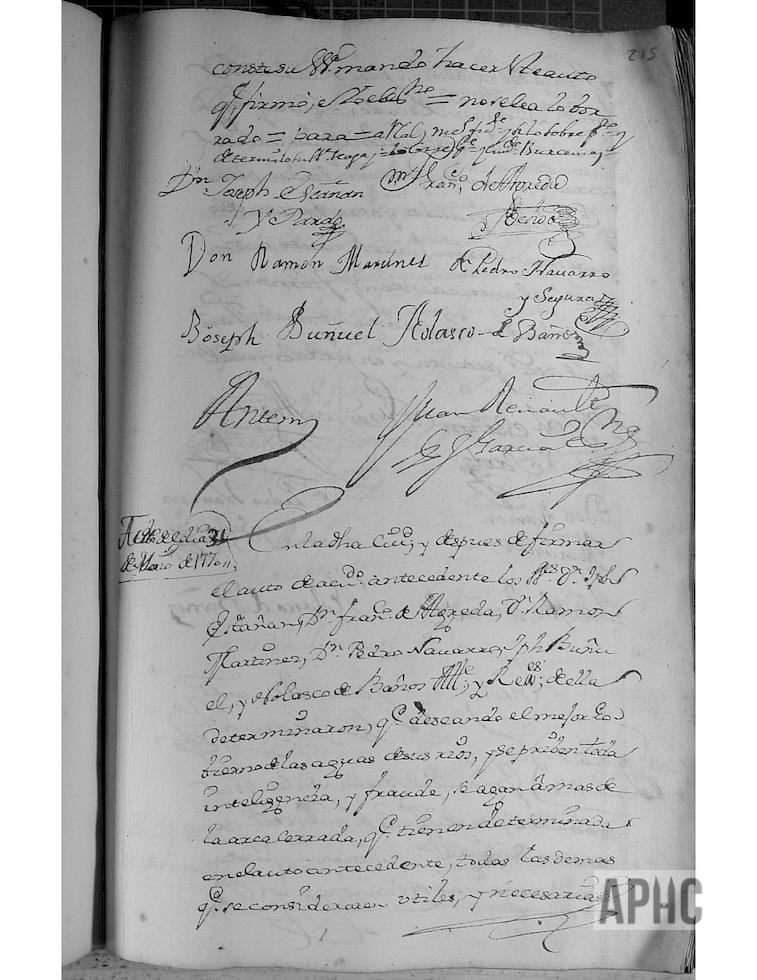 215
conste su Sª. mando hacer este auto
q.e firmó, =no velea lo bor
rado = para =
Dn Joseph Estañan Fran.co de Agreda
y Pardo
Don Ramon Martines Dn Pedro Navarro
y Segura
Joseph Buñuel Nolasco de Baños
Antemi Juan Renault
Garcia
de el dia 31
de Maio de 1770,,
En la dha Ciud; y despues de firmar
el auto de acu.do antecedente los S.res D.n Jph
Estañan, D.n fran.co de Agreda, D.n Ramon
Martinez, D.n Pedro Navarro, Jph Buñu
el, y Nolasco de Baños Alle; y Re; de ella
determinaron, q.e deseando el mejor go
bierno de las aguas de sus rios, y se priben toda
inteligencia, y fraude, se agan â mas de
la arca cerrada, q.e tienen determinada
en el auto antecedente, todas las demas
q.e se consideraren utiles, y necesarias
APHC